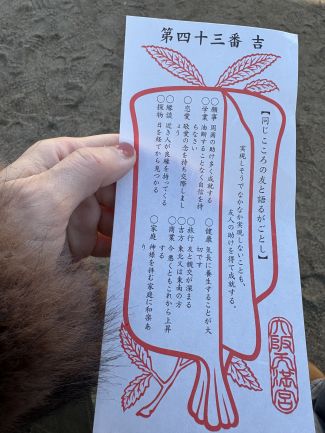 第四十三番 吉
【同じこころの友と語るがごとし】
実現しそうでなかなか実現しないことも、
友人の助けを得て成就する。
○願事 周囲の助け多く成就する
○学業 油断することなく自信を持
ちなさい
○恋愛 敬愛の念を持ち交際しまし
ょう
○縁談 近き人が良縁を持つてくる
○探物 日を経てから見つかる
○健康 気長に養生することが大
切です
○旅行 友と親交が深まる
○吉方 東北又は東南の方
○商業 今悪くともこれから上昇
する
○家庭 神様を拝む家庭に和楽あ
り
大阪天満宮